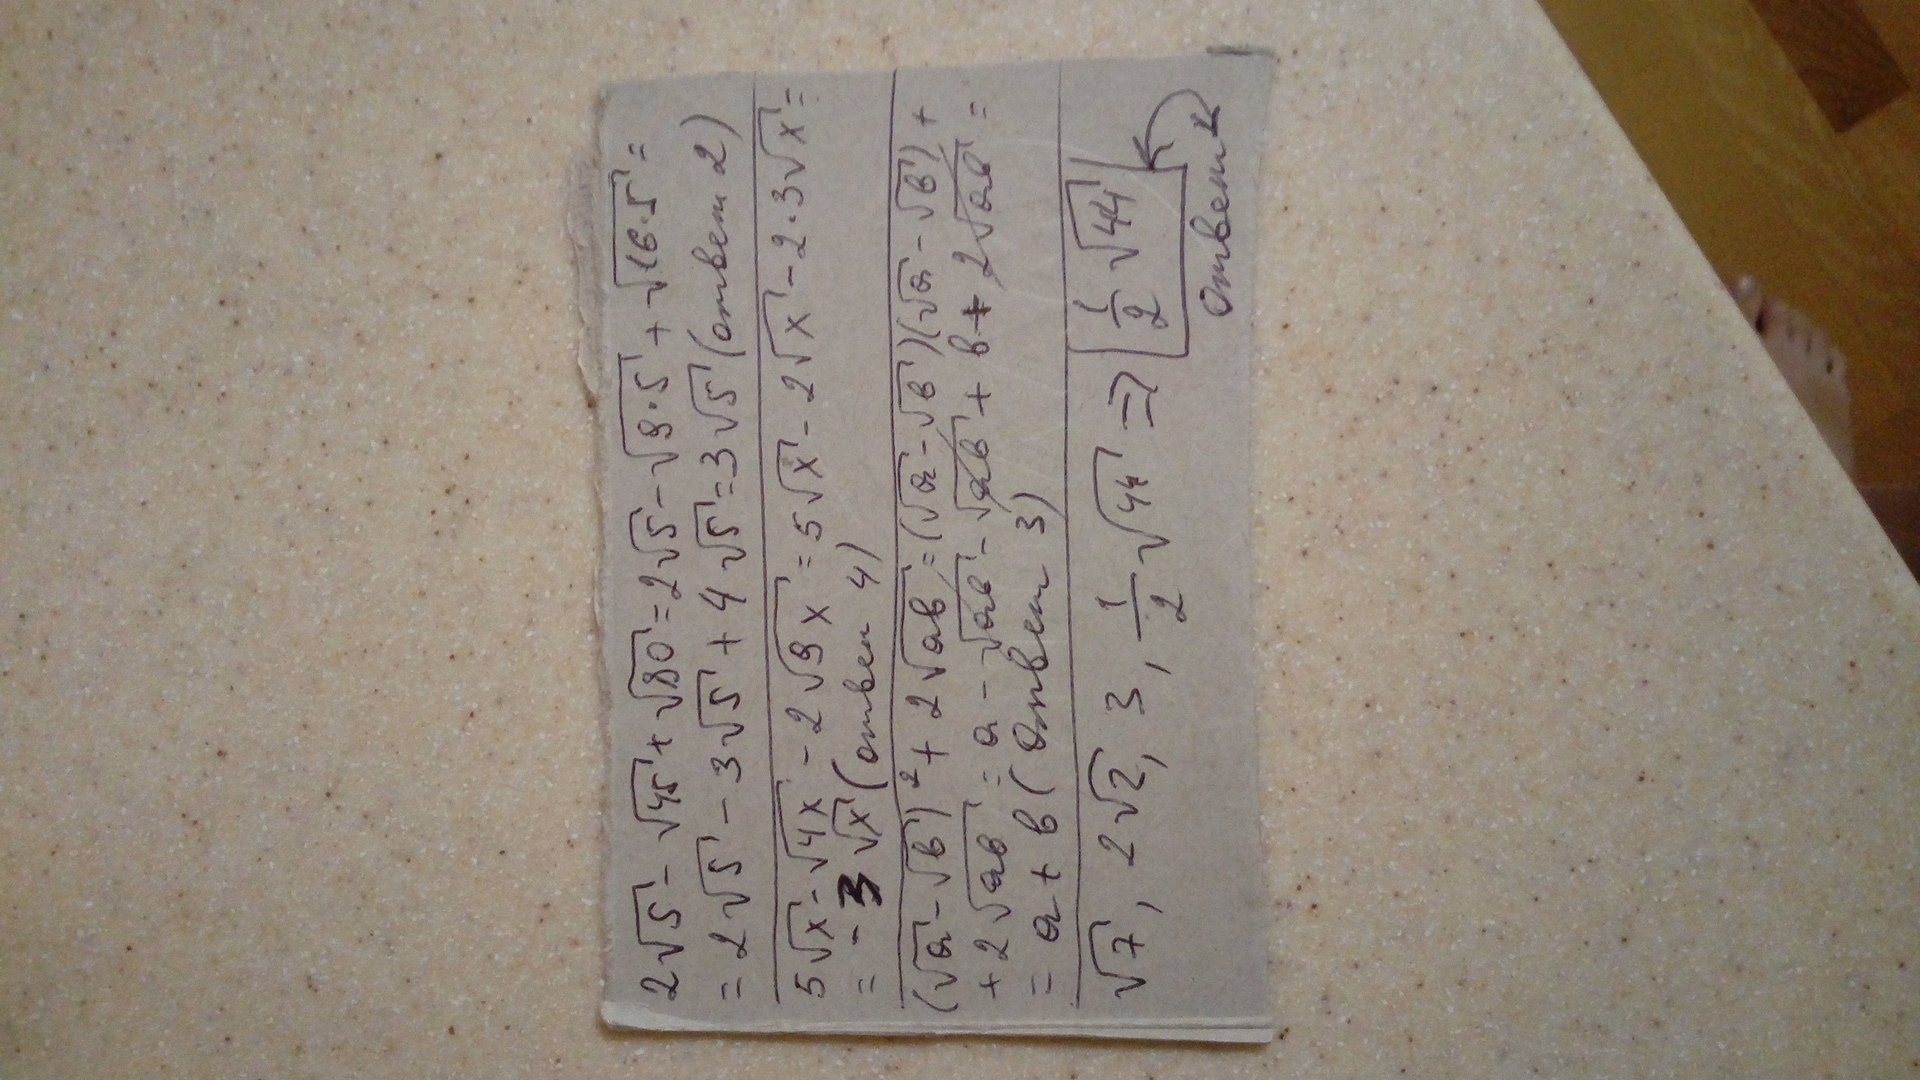 2√5 - √45 + √80 = 2√5 - √9·5 + √16·5 =
= 2√5 - 3√5 + 4√5 = 3√5 (ответ 2)
5√x - √4x - 2√9x = 5√x - 2√x - 2·3√x =
= -3√x (ответ 4)
(√a - √b)² + 2√ab = (√a - √b)(√a - √b) +
+ 2√ab = a - √ab - √ab + b + 2√ab =
= a + b (ответ 3)
√7, 2√2, 3, 1/2 √44 => 1/2 √44
Ответ